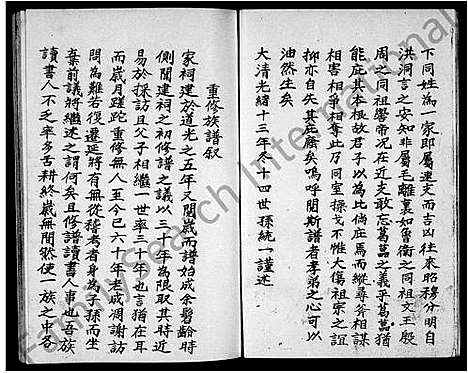 下同姓為一家即屬遠支而吉凶往來昭穆分明自
洪洞言之安知非屬毛離裏如魯衛之同祖文王殷
周之同祖嚳帝況在近支敢忘葛藟之義乎葛藟猶
能庇其本根故君子以為比倘庇焉而縱尋斧相謀
相害相爭相奪此乃同室操戈不惟大傷祖宗之誼
抑亦自失其庇廕矣嗚呼閱斯譜者孝弟之心可以
油然生矣
大清光緒十三年冬十四世孫統一謹述
重修族譜叙
家祠建於道光之五年又閱歲而譜始成余髫齡時
側聞建祠之初修譜之議以三十年為限取其時近
易於採訪且父子相繼一世率三十年也言猶在耳
而歲月蹉跎重修無人至今已六十年老成凋謝訪
問為難若復遷延將有無從稽考者身為子孫而坐
棄前議將繼述之謂何矣且修譜讀書人事也吾族
讀書人不乏率多舌耕終歲無閒然使一族之中各
FamilySearch International